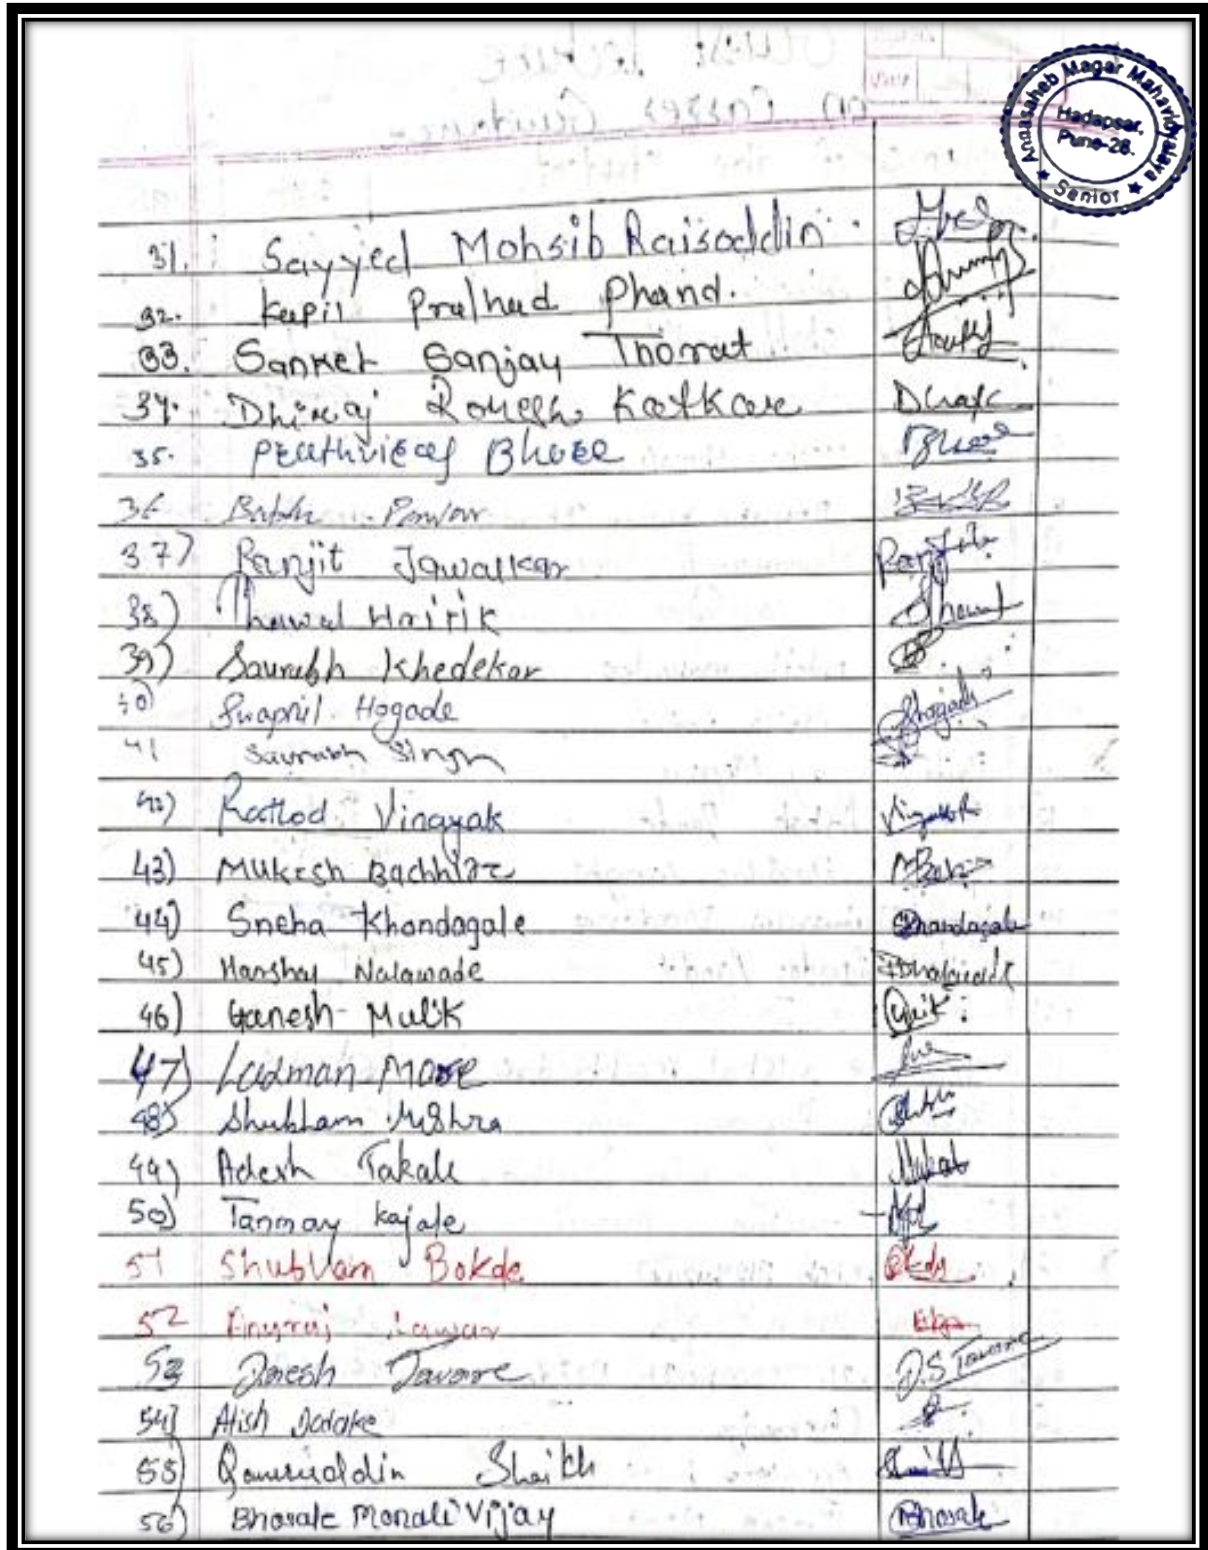 Annasaheb Magar Mahavidyalaya
Hadapsar,
Pune-28.
★ Senior ★
31. Sayyed Mohsib Raisoddin
32. Kapil Pralhad Phand.
33. Sanket Sanjay Thorat
34. Dhiraj Romesh Katkare
35. Pruthviraj Bhore
36 Pawar
37) Ranjit Jawalkar
38) Thawal Hritik
39) Saurabh Khedekar
40) Swapnil Hogade
41 Saurabh Singh
42) Rathod Vinayak
43) Mukesh Bachhire
44) Sneha Khandagale Khandagale
45) Harshay Nalawade
46) Ganesh Mulik
47) Laxman More
48) Shubham Mishra
49) Adesh Takale
50) Tanmay Kajale
51 Shubham Bokde
52
53 Dinesh Tavare D.S Tavare
54) Atish Dalake
55) Qamruddin Shaikh Shaikh
56) Bhosale Monali Vijay Bhosale